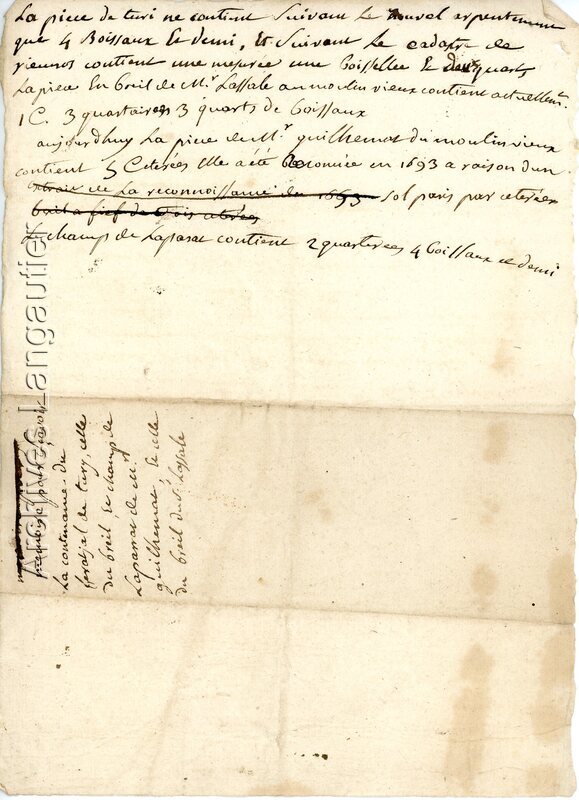 La piece de turi ne contient suivant le nouvel arpentement
que 4 Boissaux et demi, et suivant le cadastre de
rieuros contient une mesurée une boissellée et deux quarts
La piece en breil de Mr Lassale au moulin vieux contient actuellemt
1 C. 3 quartaires 3 quarts de boissaux
aujourdhuy La piece de Mr quilhemat du moulin vieux
contient 5 Ceterées elle a été reconnüe en 1693 a raison d'un
de La reconnoissance de 1693 sol paris par ceterées
bail a fief de trois ceterées
Le champ de Laparat contient 2 quarterées 4 boissaux et demi
memoire pour scavoir
La contenance du
feratjal de tury, celle
du breil, de champ de
Laparrat de Mr
quilhemat, de celle
du breil du Sr Lassale
Archives Langautier